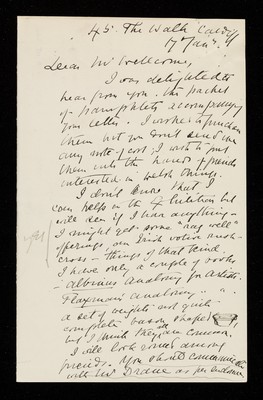 45, The Walk Cardiff
17 Jan.
Dear Mr Wellcome,
I was delighted to
hear from you. The packet
of pamphlets accompanying
your letter. I wished to purchase
them but you don't send me
any note of cost; I wish to put
them into the hands of friends
interested in Welsh things.
I don't know that I
can help in the Exhibition but
will see if I have anything -
I might get some "rag well"
offerings, an Irish votive rush-
cross - things of that kind.
I have only a couple of books
- Albinus Anatomy for artists.
Flaxman's anatomy.
a set of weights - not quite
complete basin shaped
but I think they are common.
I will look round among
friends. You should communicate
with Drane as per enclosure